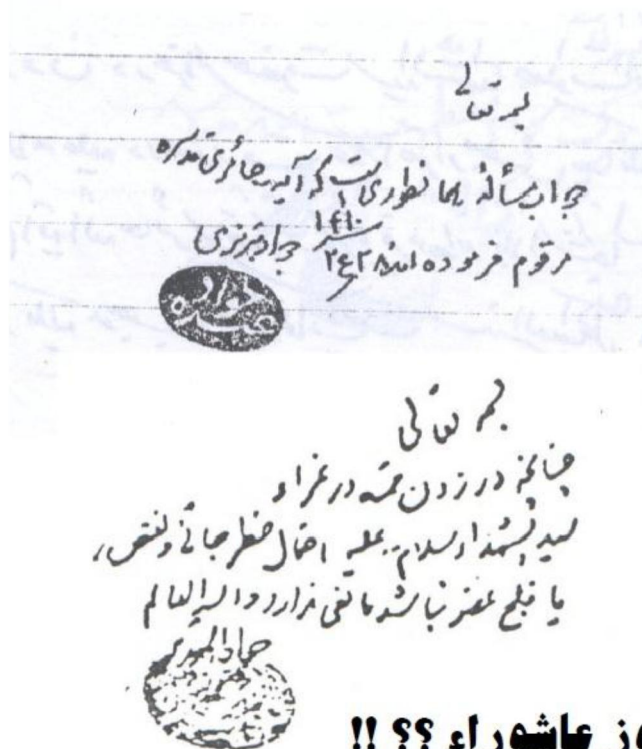 بسمه تعالی
جواب مسأله همانطوری است که آیه‌... حائری قدسره
مرقوم فرموده‌اند ۲۸ ع۲ ۱۴۱۰ جواد تبریزی
بسمه تعالی
چنانچه در زدن قمه در عزاء
سیدالشهداء سلام... علیه احتمال خطر جانی و نقص
یا فلج عضو نباشد مانعی ندارد والله العالم
عاشوراء ؟؟ !!